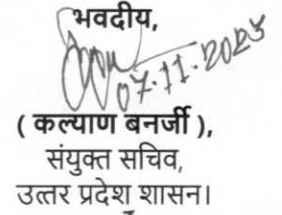 भवदीय,
07.11.2023
( कल्याण बनर्जी ),
संयुक्त सचिव,
उत्तर प्रदेश शासन।